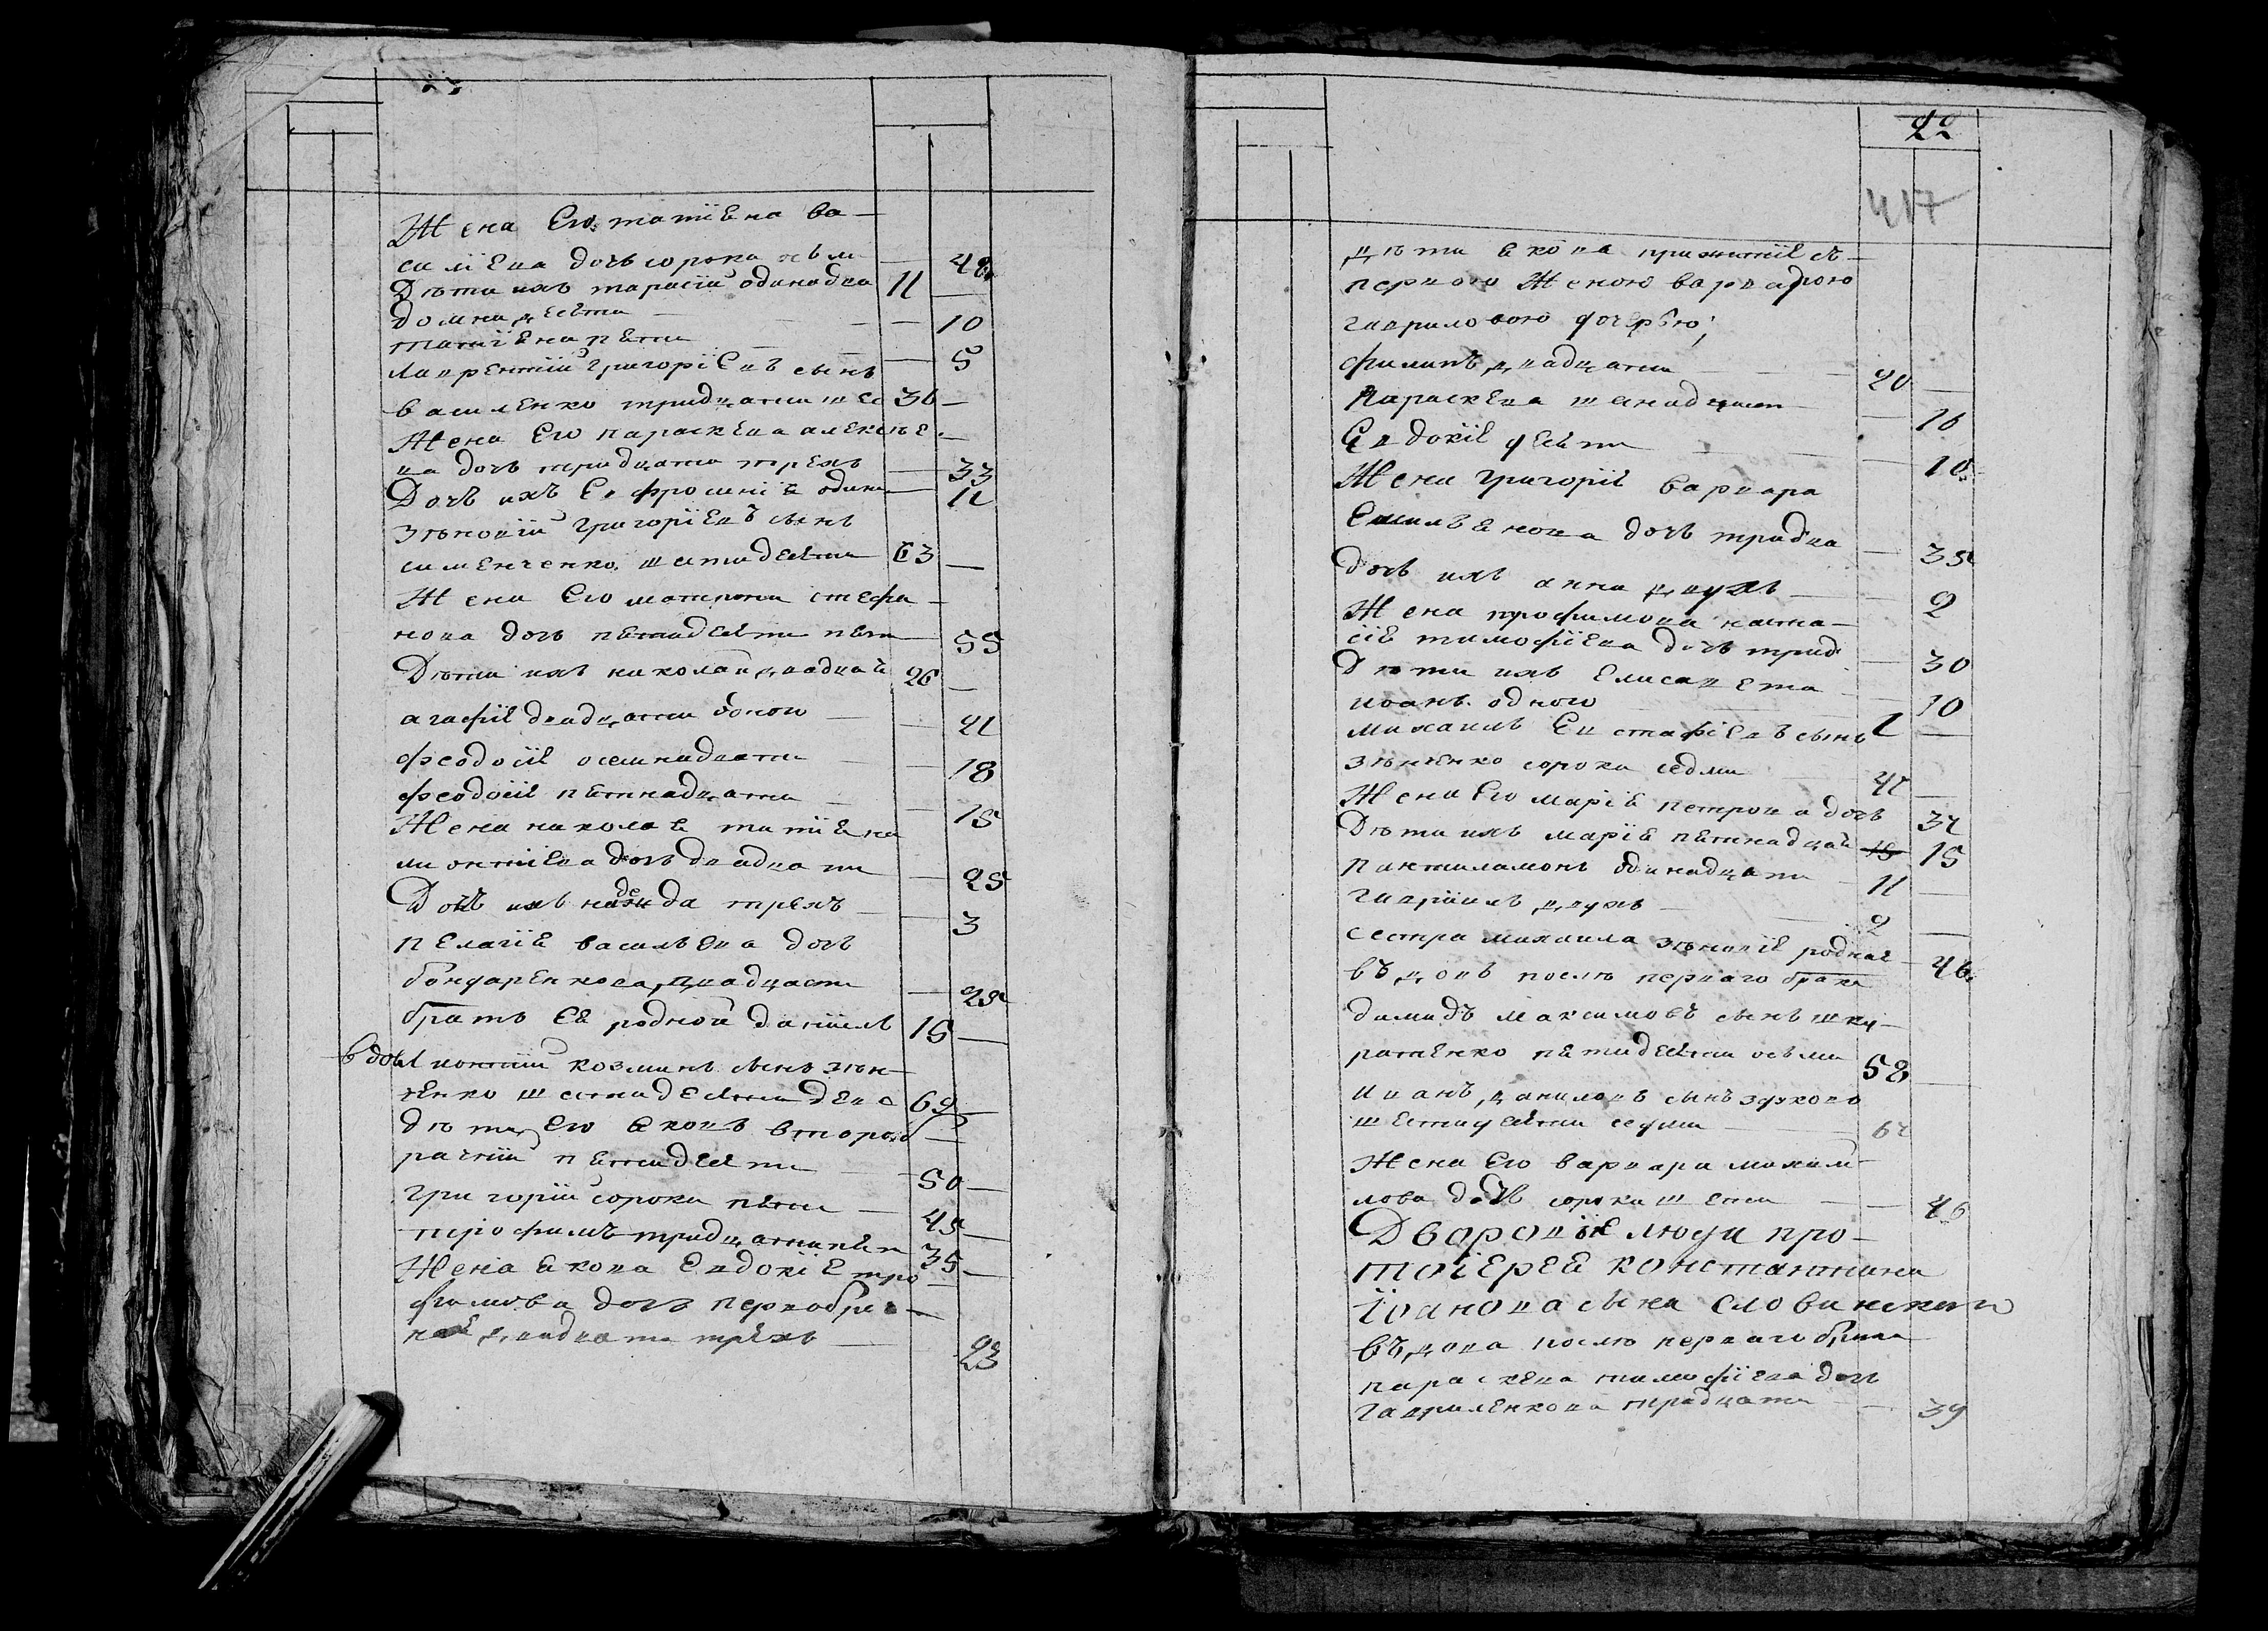 Жена Его татіѧна ва-
силіева дочь сорока осьми — 48
Дѣти ихъ тарасій одинадца 11 —
домна десѧти — 10
татіѧна пѧти — 5
лаврентій Григоріевъ сынъ
василенко тридцати шес 36 —
Жена Его параскева алексѣе-
ва дочь тридцати трехъ — 33
Дочь ихъ Евфросиніѧ один — 11
зѣновій Григоріевъ сынъ
симѧнченко шестидесѧти 63 —
Жена Его матрона стефа-
нова дочь пѧтидесѧти пѧти 55
Дѣти ихъ николай двадцай 26 —
агафіѧ двадцати одного — 21
феодосіѧ осемнадцати — 18
феодосіѧ пѧтнадцати — 15
Жена николаѧ татіѧна
леонтіева дочь двадцати — 25
Дочь ихъ надежда трехъ — 3
пелагіѧ васильева дочь
бондаренкова, двадцати — 25
братъ Еѧ родной даніилъ 15 —
вдов леонтій козминъ сынъ зѣн-
ченко шестидесѧти девѧ 69 —
дѣти Его ѧковъ второб-
рачній пѧтидесѧти — 50 —
григорій сорока пѧти — 45 —
трофимъ тридцати пѧт 35 —
Жена ѧкова Евдокіѧ тро-
фимова дочь первобрач-
наѧ двадцати трехъ — 23
22
417
дѣти ѧкова прижитіѧ съ
первою Женою варварою
гавриловою дочерью;
филипъ двадцати — 20 —
Параскева шеснадцат — 16
Евдокіѧ десѧти — 10
Жена григоріѧ варвара
Емильѧнова дочь тридца — 35
дочь ихъ анна двухъ — 2
Жена трофимова наста-
сіѧ тимофіева дочь трид — 30
Дѣти ихъ Елисавета — 10
иванъ одного 1 —
михаилъ Евстафіевъ сынъ
зѣнченко сорока седми 47 —
Жена Его маріѧ петрова дочь 37
Дѣти ихъ маріѧ пѧтнадцай 15 15
пантилимонъ одинадцати 11 —
гавріилъ двухъ — 2 —
сестра михаила зѣновіѧ роднаѧ — 46
въдовъ послѣ перваго брака
димидъ максимовъ сынъ шку-
ратенко пѧтидесѧти осьми 58 —
иванъ даниловъ сынъ
шестидесѧти седми — 67
Жена Его варвара михаи-
лова дочь сорока шести — 46
Дворовіе люди про-
тоіереѧ константина
Іоанова сына словинского
въдова послѣ перваго брака
параскева тимофіева дочь
гавриленкова тридцати — 39